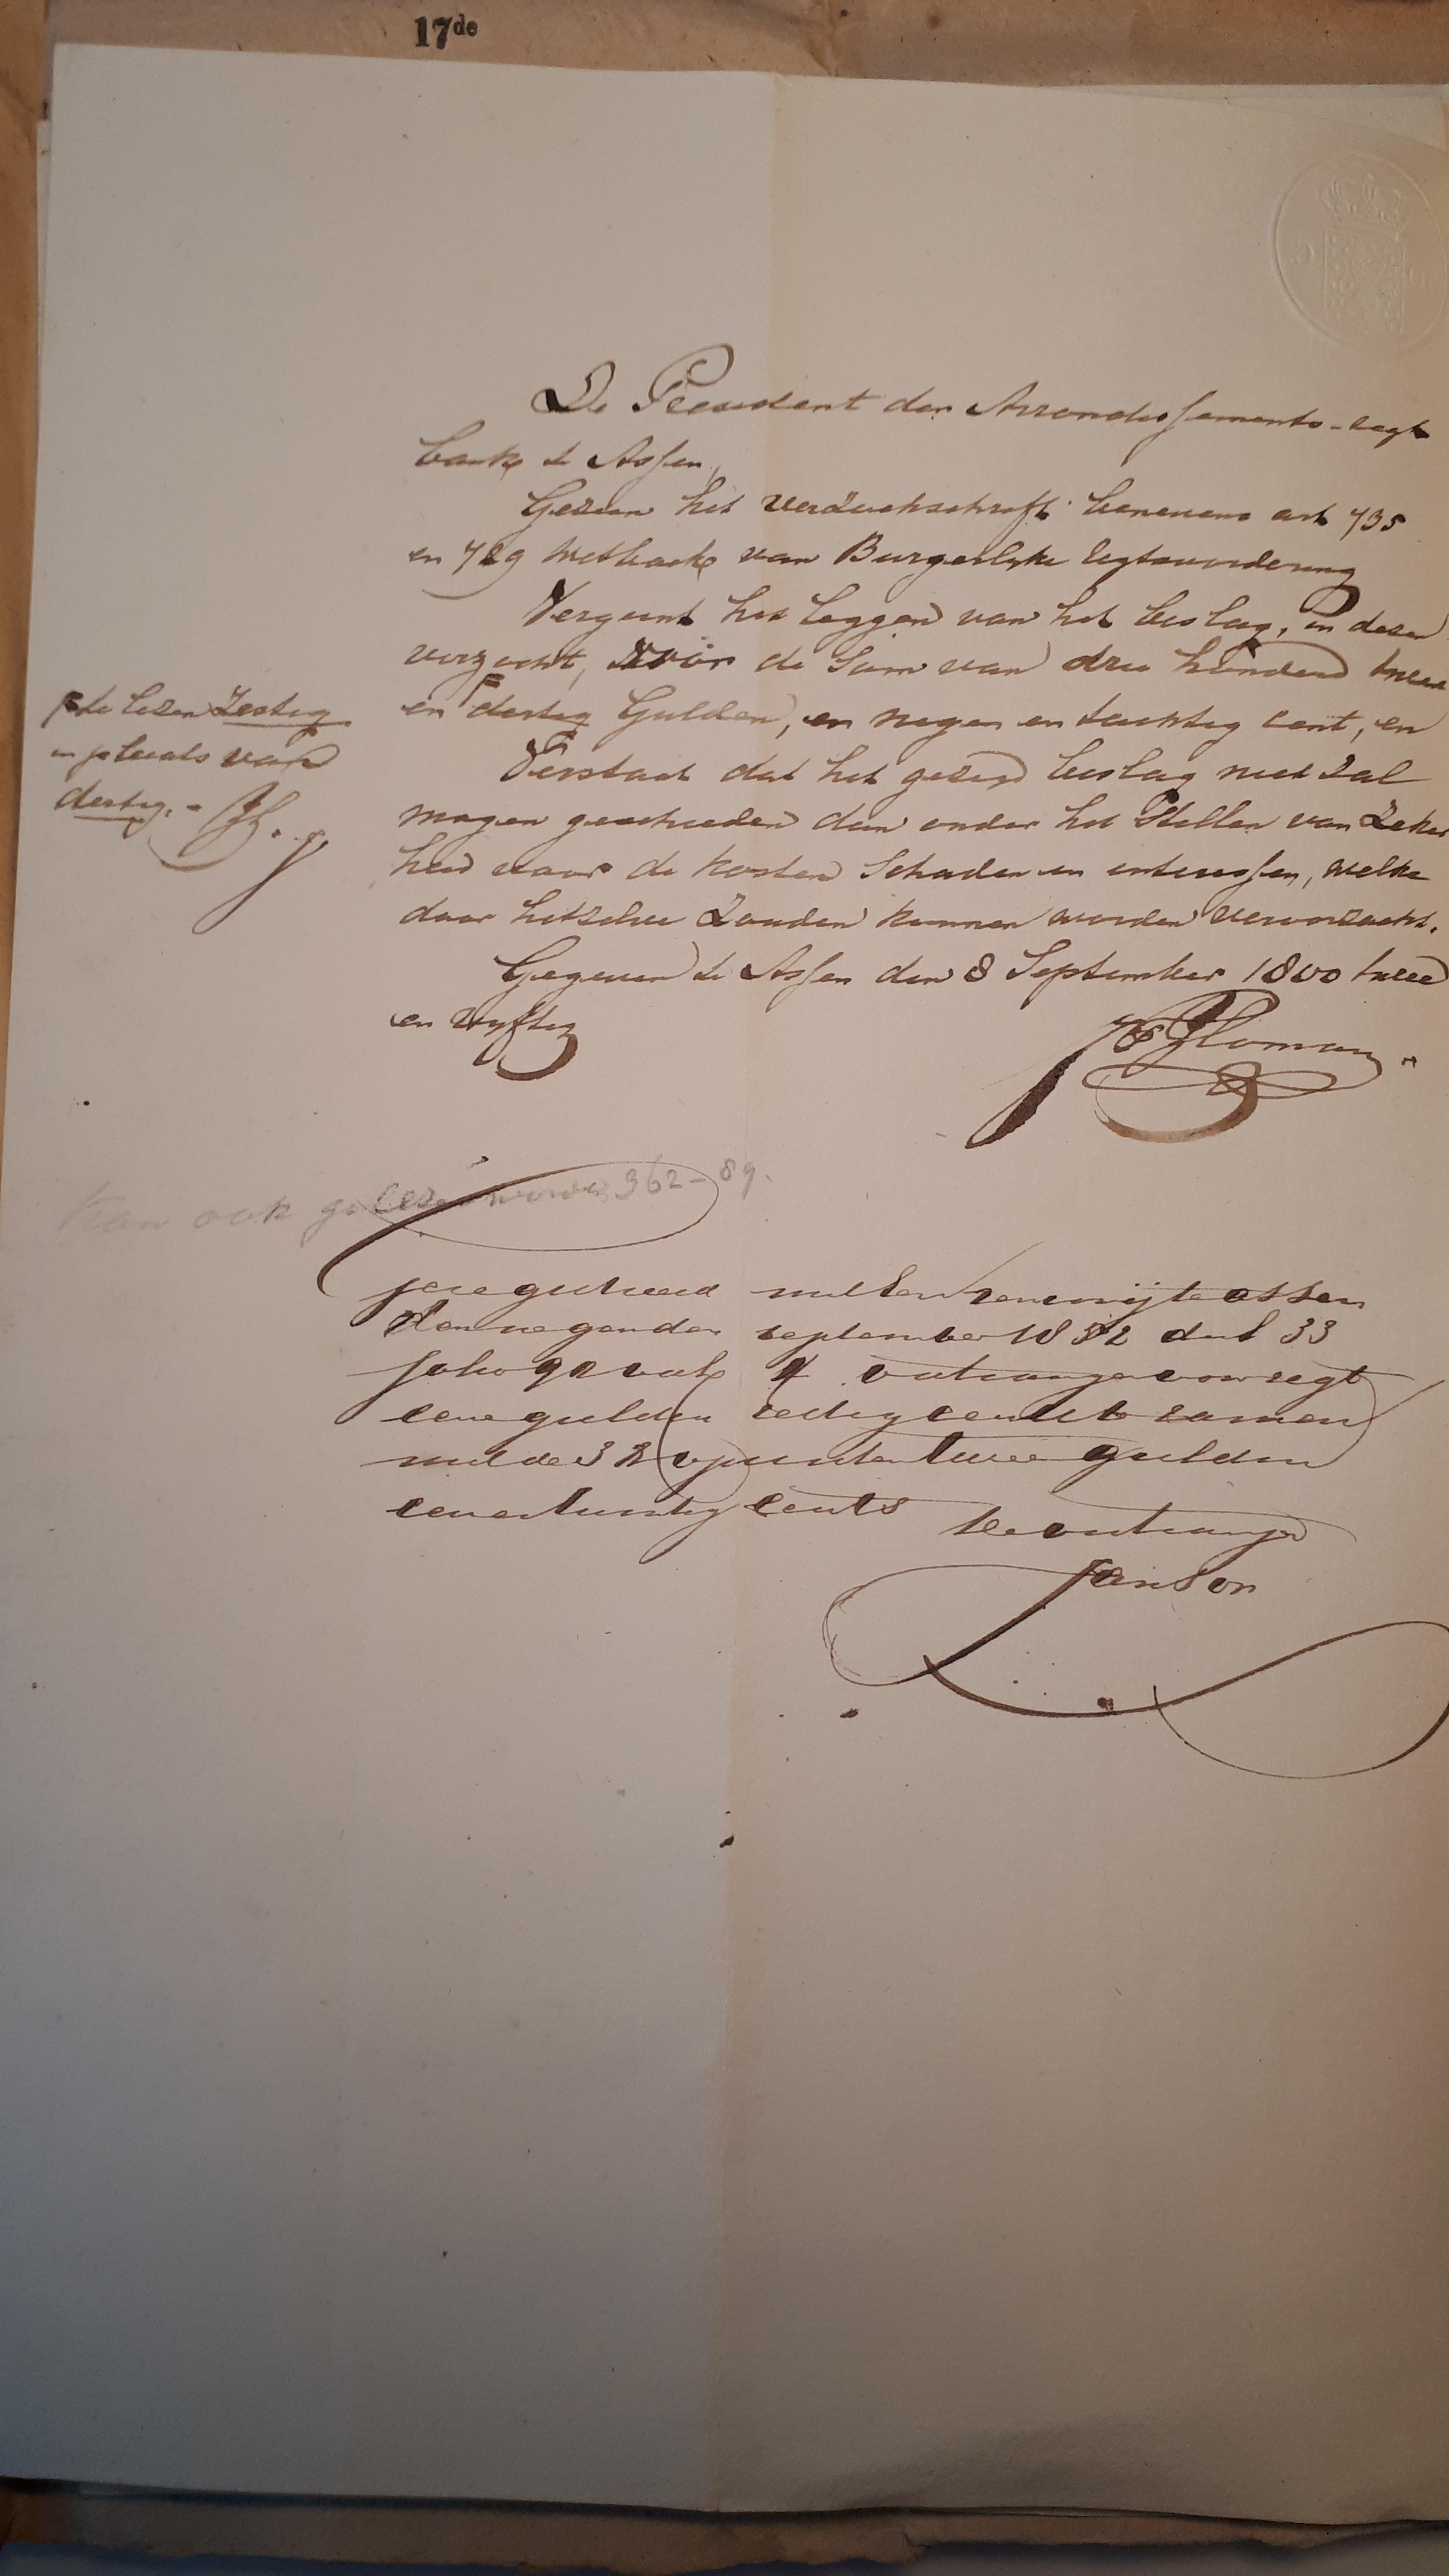 17de
De President der Arrondissements-regt
bank te Assen,
Gezien het verzoekschrift benevens art 735
en 729 Wetboek van Burgerlyke Regtsvordering
Vergunt het leggen van het beslag, in dezen
verzocht, vóór de Som van drie honderd twee
en dertig Gulden, en negen en tachtig cent, en
te lezen Zestig
in plaats van
dertig. -
Verstaat dat het gezegd beslag niet zal
mogen geschieden dan onder het Stellen van Zeker
heid voor de kosten Schaden en interessen, welke
door hetzelve Zouden kunnen worden veroorzaakt.
Gegeven te Assen den 8 September 1800 twee
en vyftig
Homan
Kan ook gelezen worden 362-89.
geregistreerd met een renvooij te Assen
den negenden september 1852 deel 33
folio 92 vak 4 ontvangen voor regt
eene gulden zestig cents samen
met de 38 opcenten twee gulden
een en twintig cents
de ontvanger
Janson